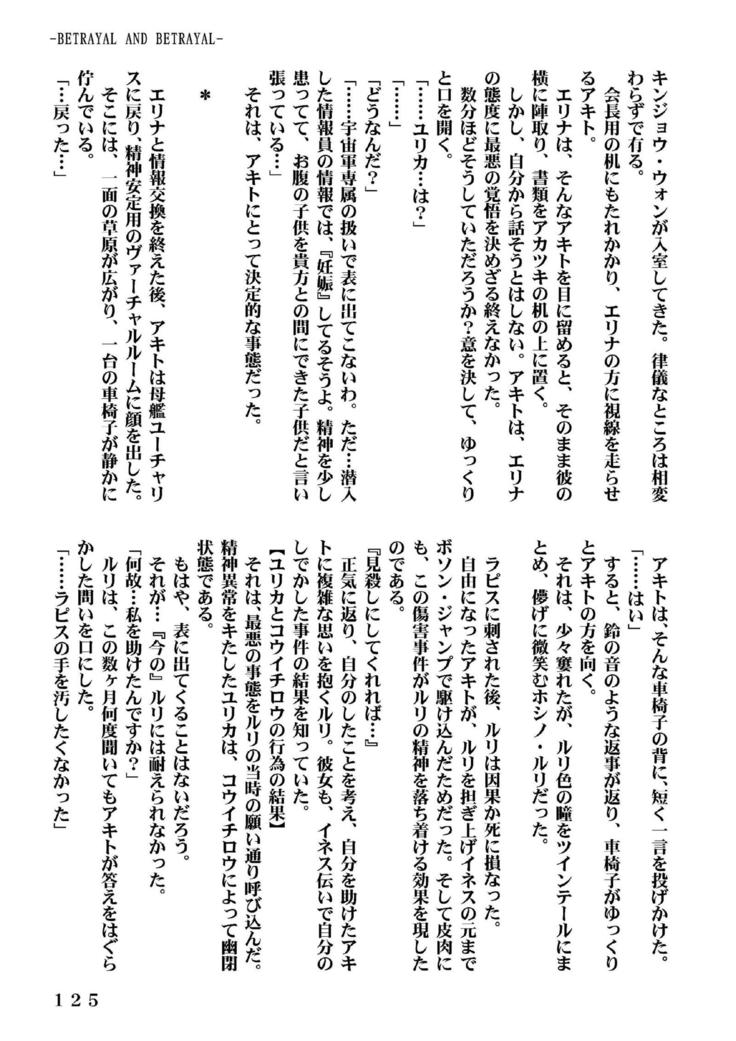 -BETRAYAL AND BETRAYAL-
キンジョウ・ウォンが入室してきた。律儀なところは相変
わらずで有る。
　会長用の机にもたれかかり、エリナの方に視線を走らせ
るアキト。
　エリナは、そんなアキトを目に留めると、そのまま彼の
横に陣取り、書類をアカツキの机の上に置く。
　しかし、自分から話そうとはしない。アキトは、エリナ
の態度に最悪の覚悟を決めざる終えなかった。
　数分ほどそうしていただろうか？意を決して、ゆっくり
と口を開く。
「……ユリカ…は？」
「……」
「どうなんだ？」
「……宇宙軍専属の扱いで表に出てこないわ。ただ…潜入
した情報員の情報では、『妊娠』してるそうよ。精神を少し
患ってて、お腹の子供を貴方との間にできた子供だと言い
張っている…」
　それは、アキトにとって決定的な事態だった。
＊
　エリナと情報交換を終えた後、アキトは母艦ユーチャリ
スに戻り、精神安定用のヴァーチャルルームに顔を出した。
　そこには、一面の草原が広がり、一台の車椅子が静かに
佇んでいる。
「…戻った…」
　アキトは、そんな車椅子の背に、短く一言を投げかけた。
「……はい」
　すると、鈴の音のような返事が返り、車椅子がゆっくり
とアキトの方を向く。
　それは、少々窶れたが、ルリ色の瞳をツインテールにま
とめ、儚げに微笑むホシノ・ルリだった。
　ラピスに刺された後、ルリは因果か死に損なった。
　自由になったアキトが、ルリを担ぎ上げイネスの元まで
ボソン・ジャンプで駆け込んだためだった。そして皮肉に
も、この傷害事件がルリの精神を落ち着ける効果を現した
のである。
『見殺しにしてくれれば…』
　正気に返り、自分のしたことを考え、自分を助けたアキ
トに複雑な思いを抱くルリ。彼女も、イネス伝いで自分の
しでかした事件の結果を知っていた。
【ユリカとコウイチロウの行為の結果】
　それは、最悪の事態をルリの当時の願い通り呼び込んだ。
精神異常をキたしたユリカは、コウイチロウによって幽閉
状態である。
　もはや、表に出てくることはないだろう。
　それが…『今の』ルリには耐えられなかった。
「何故…私を助けたんですか？」
　ルリは、この数ヶ月何度聞いてもアキトが答えをはぐら
かした問いを口にした。
「……ラピスの手を汚したくなかった」
125